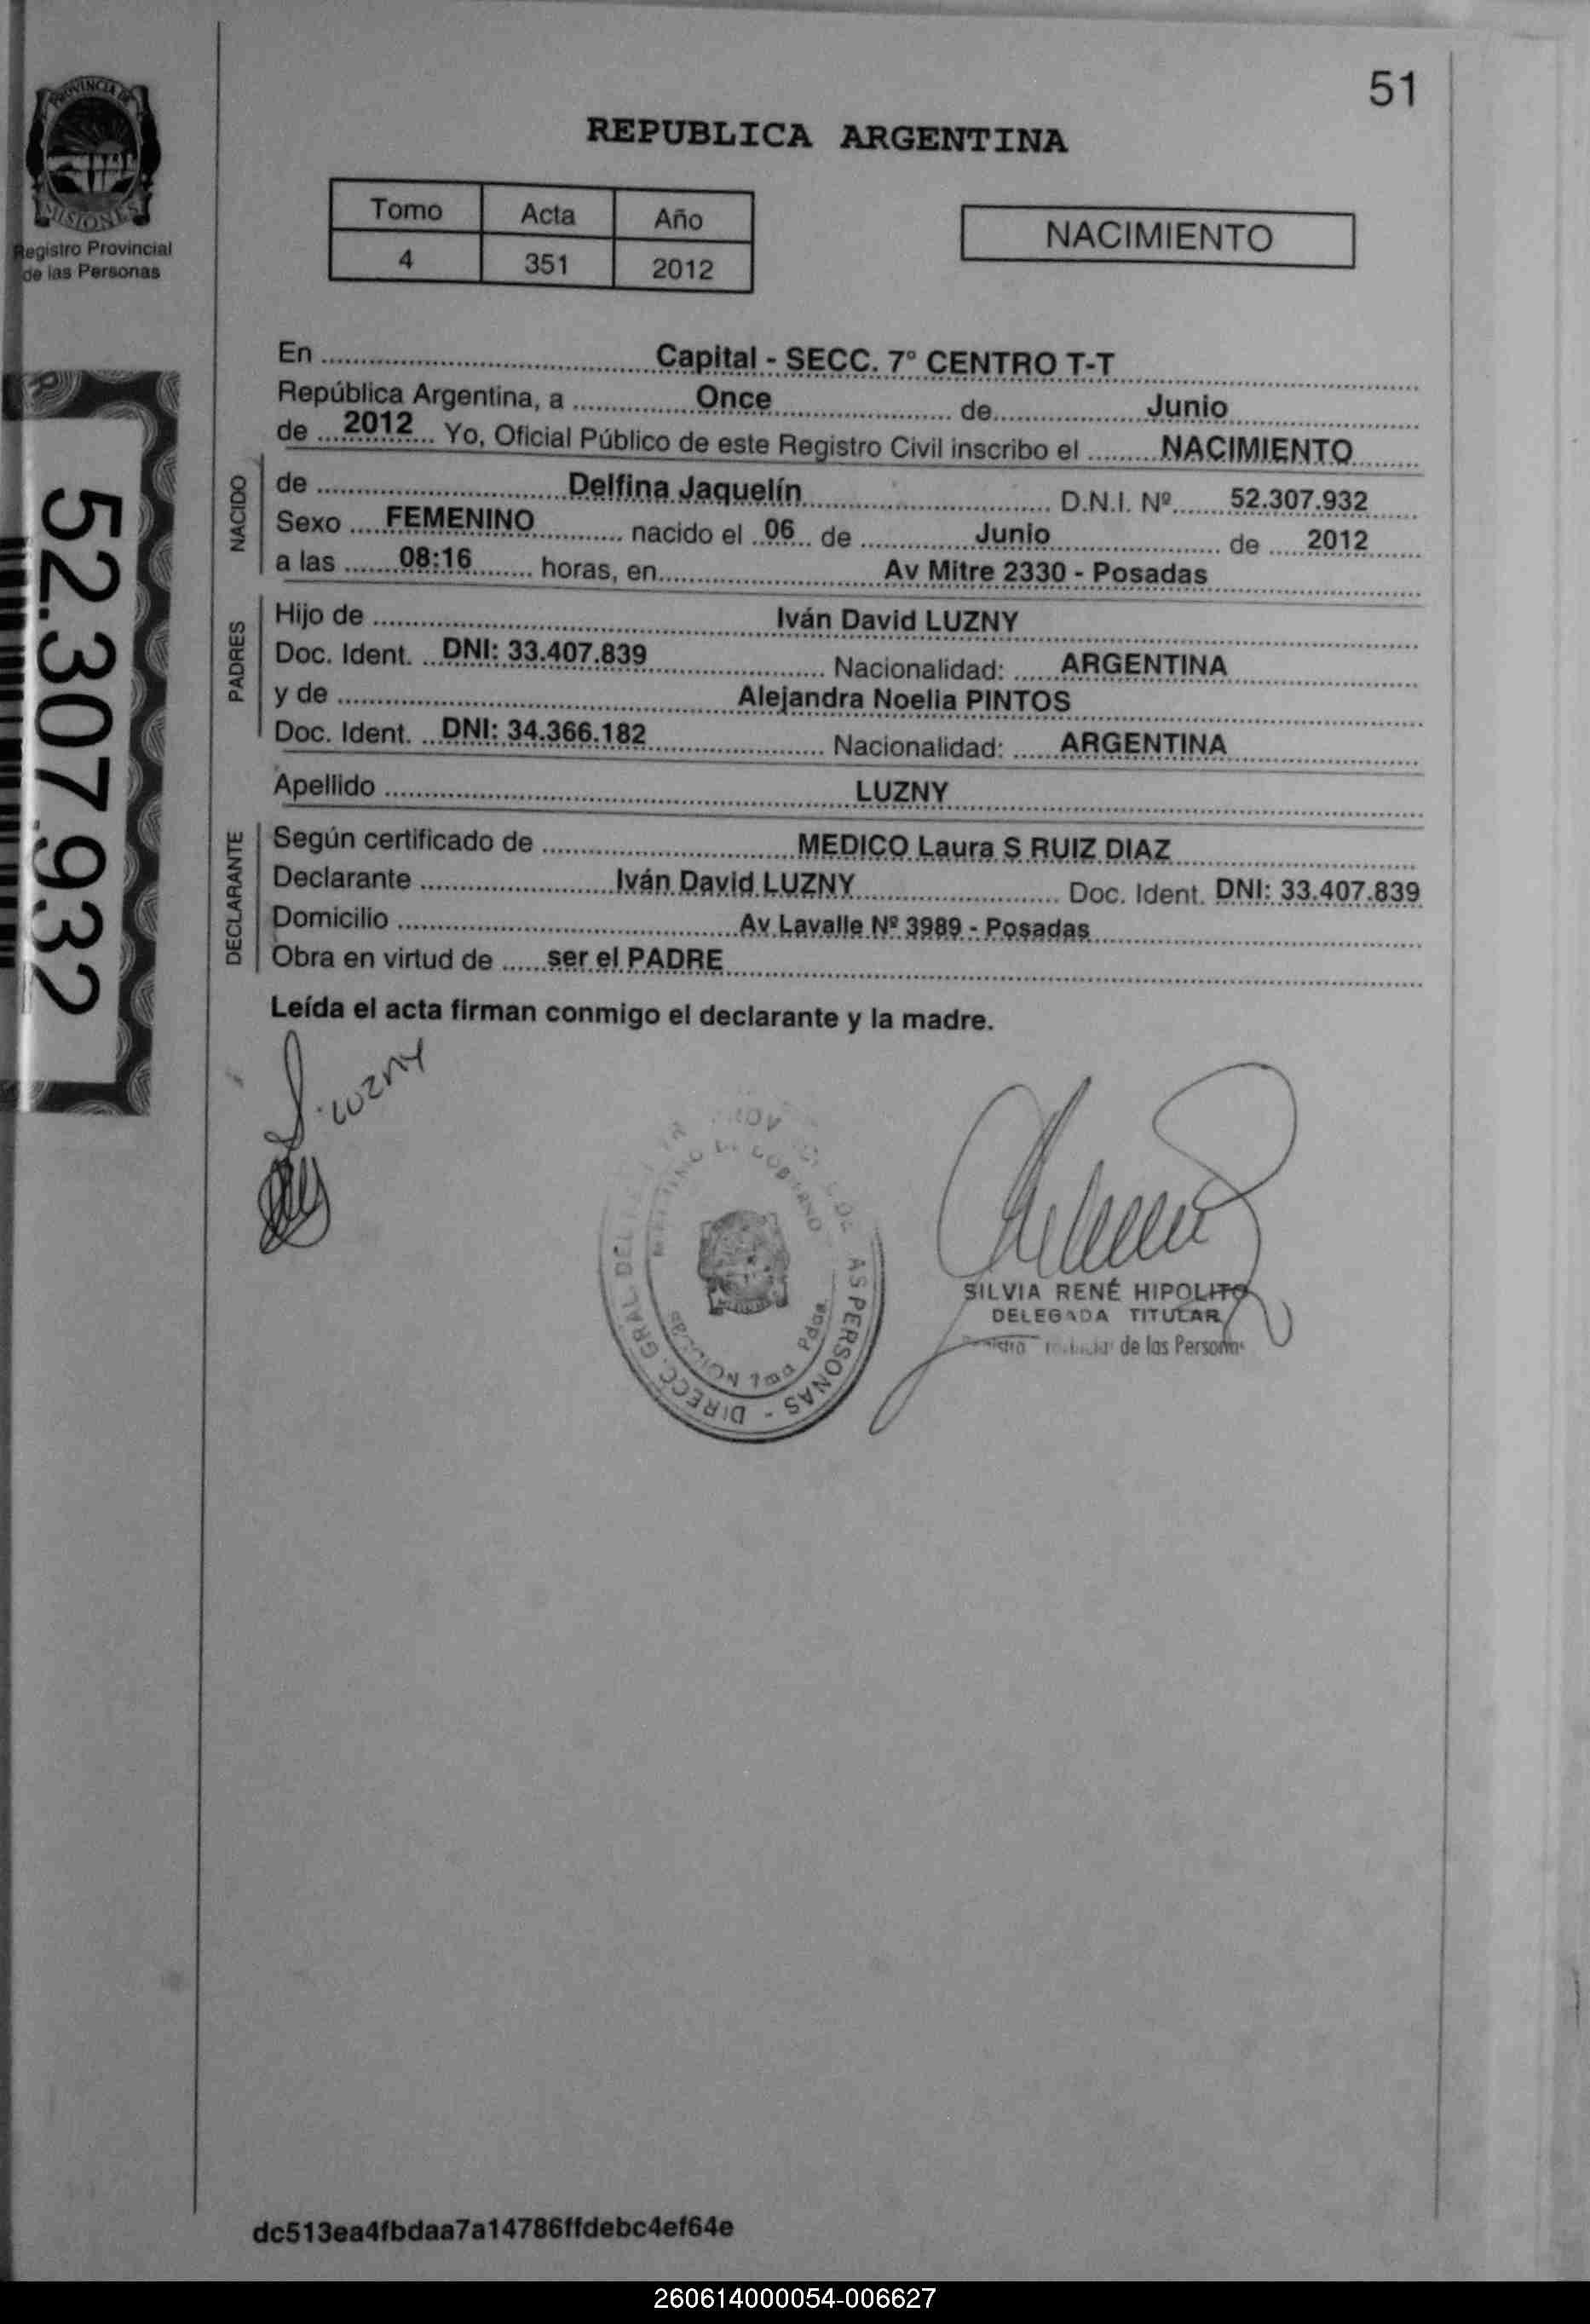 51
PROVINCIA DE
MISIONES
Registro Provincial
de las Personas
REPUBLICA ARGENTINA
Tomo Acta Año
4 351 2012
NACIMIENTO
52.307.932
En Capital - SECC. 7º CENTRO T-T
República Argentina, a Once de Junio
de 2012 Yo, Oficial Público de este Registro Civil inscribo el NACIMIENTO
NACIDO
de Delfina Jaquelín D.N.I. Nº 52.307.932
Sexo FEMENINO nacido el 06 de Junio de 2012
a las 08:16 horas, en Av Mitre 2330 - Posadas
PADRES
Hijo de Iván David LUZNY
Doc. Ident. DNI: 33.407.839 Nacionalidad: ARGENTINA
y de Alejandra Noelia PINTOS
Doc. Ident. DNI: 34.366.182 Nacionalidad: ARGENTINA
Apellido LUZNY
DECLARANTE
Según certificado de MEDICO Laura S RUIZ DIAZ
Declarante Iván David LUZNY Doc. Ident. DNI: 33.407.839
Domicilio Av Lavalle Nº 3989 - Posadas
Obra en virtud de ser el PADRE
Leída el acta firman conmigo el declarante y la madre.
Luzny
DIRECC. GRAL. DEL
AS PERSONAS -
SILVIA RENÉ HIPOLITO
DELEGADA TITULAR
de las Personas
dc513ea4fbdaa7a14786ffdebc4ef64e
260614000054-006627